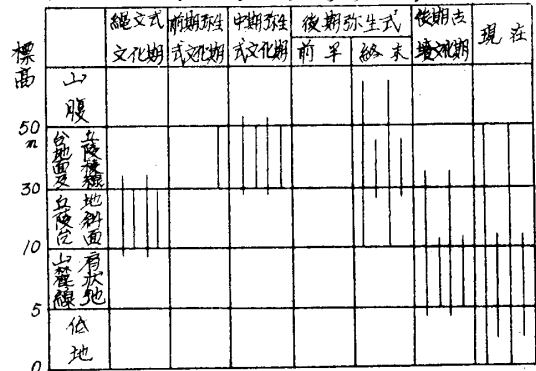 縄文式
文化期
前期弥生
式文化期
中期弥生
式文化期
後期弥生式
前半
終末
後期古
墳文化期
現在
標高
山腹
50
m
台地面及
丘陵稜線
30
丘陵台
地斜面
10
山麓線
扇状地
5
低地
0